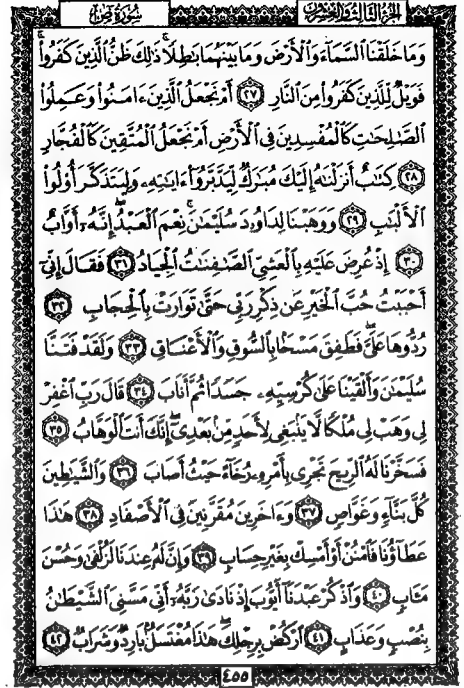 الجزء الثالث والعشرون
سورة ص
وَمَا خَلَقْنَا ٱلسَّمَآءَ وَٱلْأَرْضَ وَمَا بَيْنَهُمَا بَـٰطِلًا ۚ ذَٰلِكَ ظَنُّ ٱلَّذِينَ كَفَرُوا۟ ۚ
فَوَيْلٌ لِّلَّذِينَ كَفَرُوا۟ مِنَ ٱلنَّارِ ٢٧ أَمْ نَجْعَلُ ٱلَّذِينَ ءَامَنُوا۟ وَعَمِلُوا۟
ٱلصَّـٰلِحَـٰتِ كَٱلْمُفْسِدِينَ فِى ٱلْأَرْضِ أَمْ نَجْعَلُ ٱلْمُتَّقِينَ كَٱلْفُجَّارِ
٢٨ كِتَـٰبٌ أَنزَلْنَـٰهُ إِلَيْكَ مُبَـٰرَكٌ لِّيَدَّبَّرُوٓا۟ ءَايَـٰتِهِۦ وَلِيَتَذَكَّرَ أُو۟لُوا۟
ٱلْأَلْبَـٰبِ ٢٩ وَوَهَبْنَا لِدَاوُۥدَ سُلَيْمَـٰنَ ۚ نِعْمَ ٱلْعَبْدُ ۖ إِنَّهُۥٓ أَوَّابٌ
٣٠ إِذْ عُرِضَ عَلَيْهِ بِٱلْعَشِىِّ ٱلصَّـٰفِنَـٰتُ ٱلْجِيَادُ ٣١ فَقَالَ إِنِّىٓ
أَحْبَبْتُ حُبَّ ٱلْخَيْرِ عَن ذِكْرِ رَبِّى حَتَّىٰ تَوَارَتْ بِٱلْحِجَابِ ٣٢
رُدُّوهَا عَلَىَّ ۖ فَطَفِقَ مَسْحًۢا بِٱلسُّوقِ وَٱلْأَعْنَاقِ ٣٣ وَلَقَدْ فَتَنَّا
سُلَيْمَـٰنَ وَأَلْقَيْنَا عَلَىٰ كُرْسِيِّهِۦ جَسَدًا ثُمَّ أَنَابَ ٣٤ قَالَ رَبِّ ٱغْفِرْ
لِى وَهَبْ لِى مُلْكًا لَّا يَنۢبَغِى لِأَحَدٍ مِّنۢ بَعْدِىٓ ۖ إِنَّكَ أَنتَ ٱلْوَهَّابُ ٣٥
فَسَخَّرْنَا لَهُ ٱلرِّيحَ تَجْرِى بِأَمْرِهِۦ رُخَآءً حَيْثُ أَصَابَ ٣٦ وَٱلشَّيَـٰطِينَ
كُلَّ بَنَّآءٍ وَغَوَّاصٍ ٣٧ وَءَاخَرِينَ مُقَرَّنِينَ فِى ٱلْأَصْفَادِ ٣٨ هَـٰذَا
عَطَآؤُنَا فَٱمْنُنْ أَوْ أَمْسِكْ بِغَيْرِ حِسَابٍ ٣٩ وَإِنَّ لَهُۥ عِندَنَا لَزُلْفَىٰ وَحُسْنَ
مَـَٔابٍ ٤٠ وَٱذْكُرْ عَبْدَنَآ أَيُّوبَ إِذْ نَادَىٰ رَبَّهُۥٓ أَنِّى مَسَّنِىَ ٱلشَّيْطَـٰنُ
بِنُصْبٍ وَعَذَابٍ ٤١ ٱرْكُضْ بِرِجْلِكَ ۖ هَـٰذَا مُغْتَسَلٌۢ بَارِدٌ وَشَرَابٌ ٤٢
٤٥٥